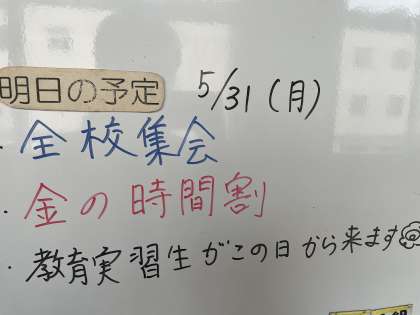 明日の予定 5/31(月)
・全校集会
・金の時間割
・教育実習生がこの日から来ます